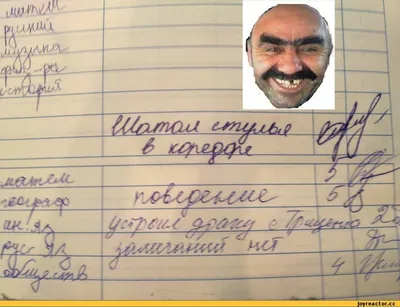 матем
русский
музыка
физ-ра
история
Шатал стулья
в коредоре
матем 5
географ поведение 5
ин. яз устроил драку с Гриценко 2
русс яз замечаний нет
обществ 4
joyreactor.cc